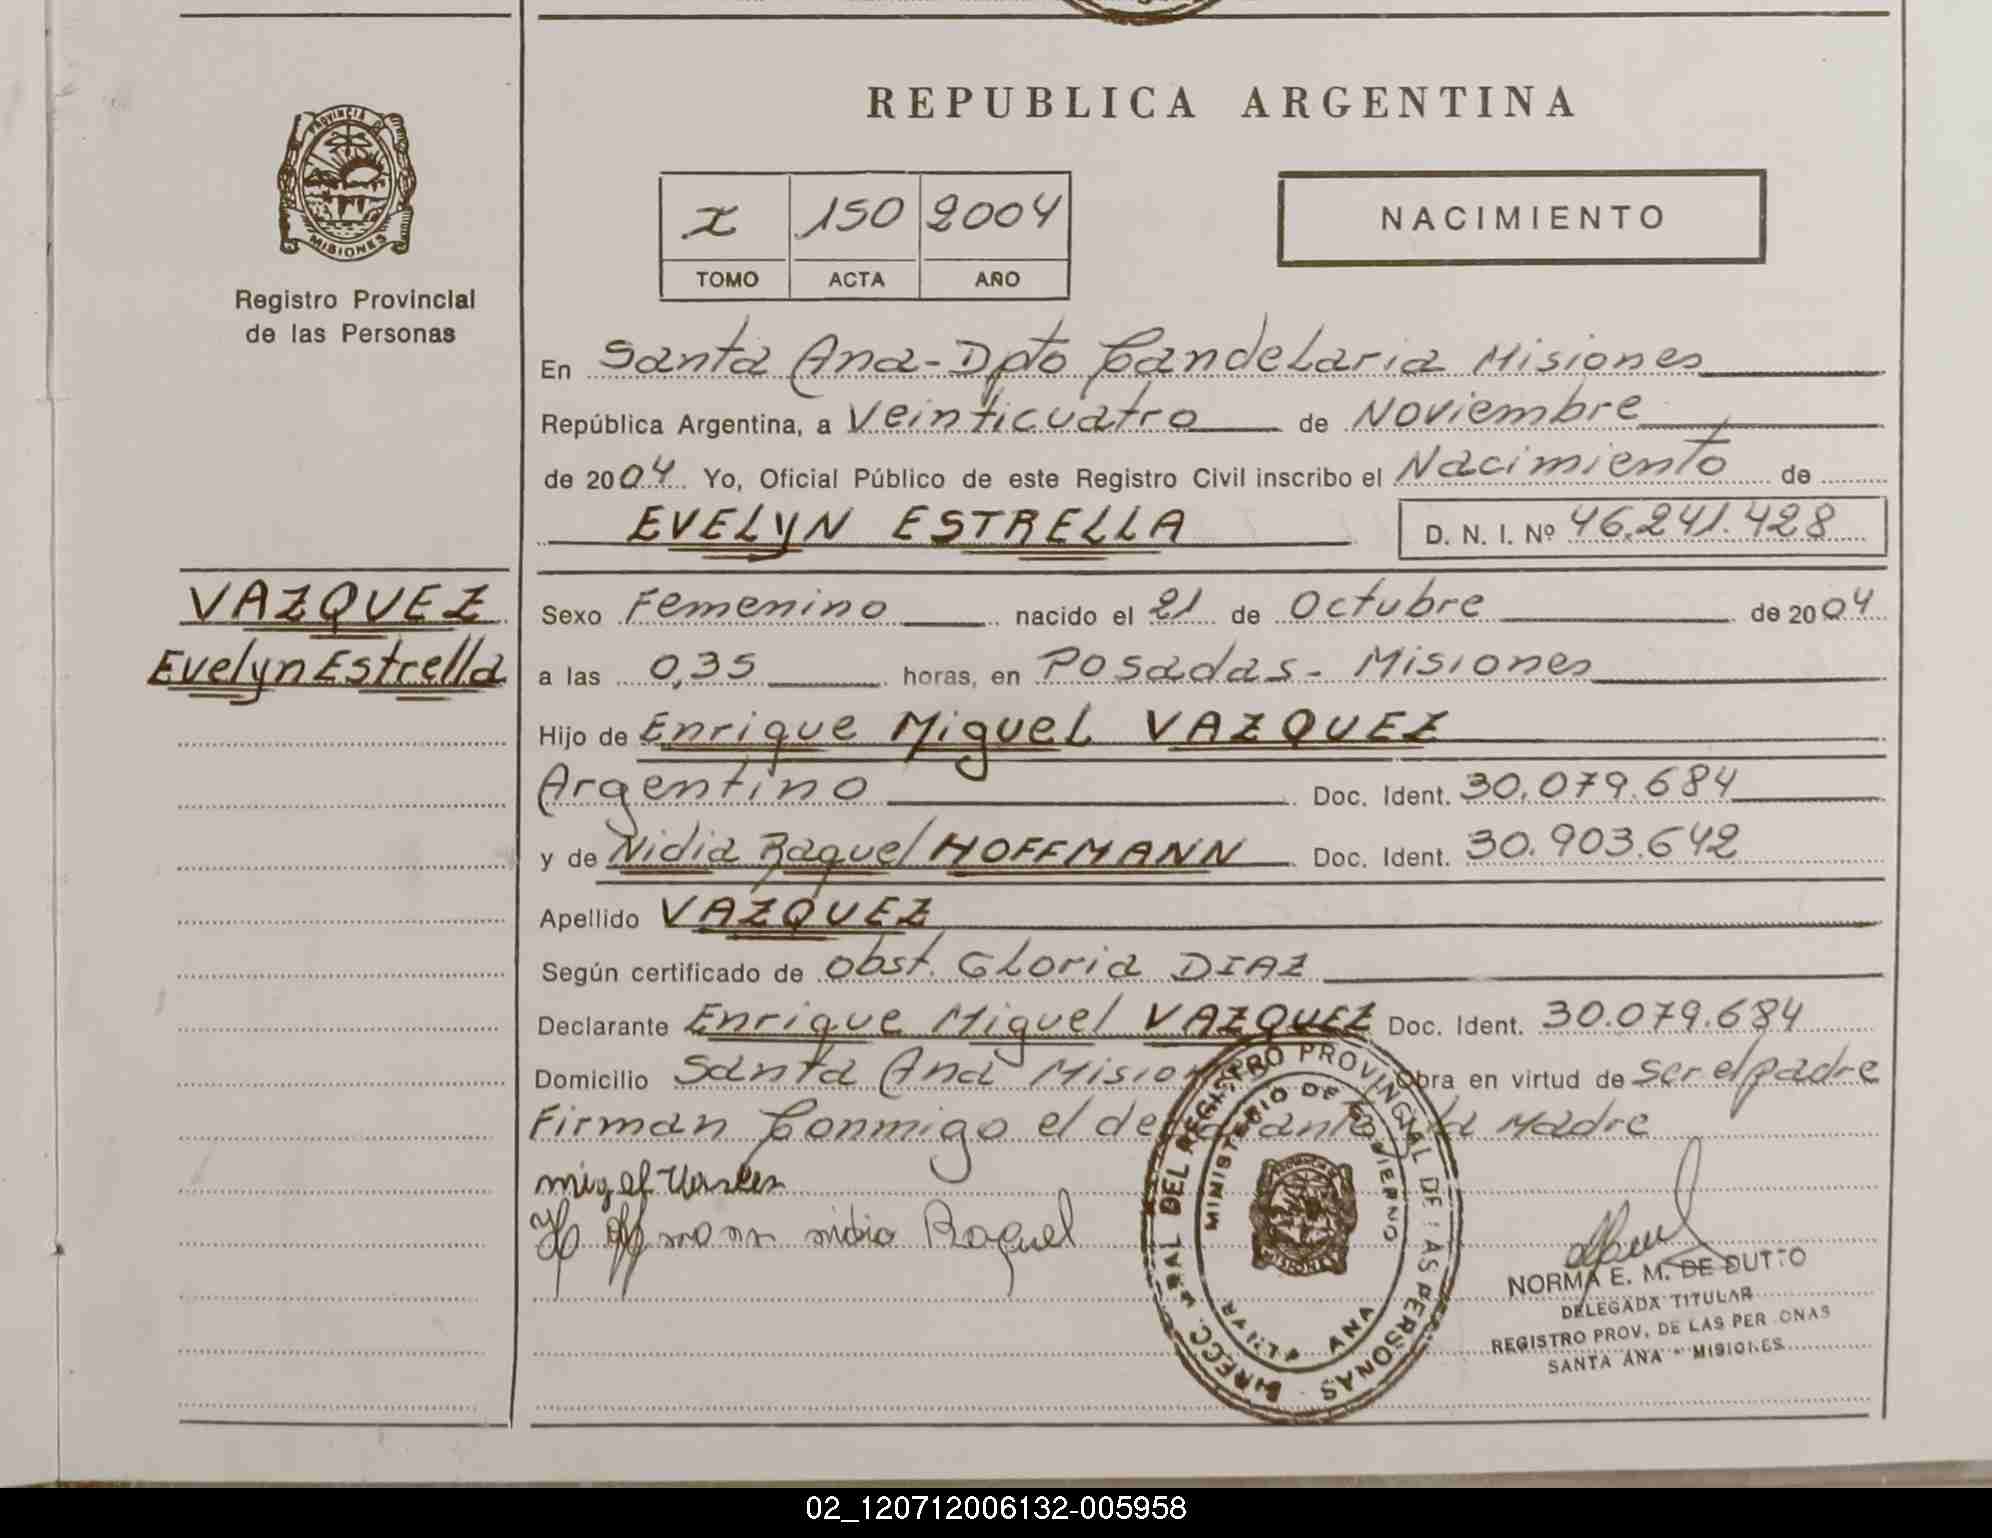 REPUBLICA ARGENTINA
PROVINCIA DE
MISIONES
Registro Provincial
de las Personas
x 150 2004
TOMO ACTA AÑO
NACIMIENTO
En Santa Ana-Dpto Candelaria Misiones
República Argentina, a Veinticuatro de Noviembre
de 2004 Yo, Oficial Público de este Registro Civil inscribo el Nacimiento de
EVELYN ESTRELLA D. N. I. Nº 46.241.428
VAZQUEZ
Evelyn Estrella
Sexo Femenino nacido el 21 de Octubre de 2004
a las 0,35 horas, en Posadas- Misiones
Hijo de Enrique Miguel VAZQUEZ
Argentino Doc. Ident. 30.079.684
y de Nidia Raquel HOFFMANN Doc. Ident. 30.903.642
Apellido VAZQUEZ
Según certificado de obst. Gloria DIAZ
Declarante Enrique Miguel VAZQUEZ Doc. Ident. 30.079.684
Domicilio Santa Ana Misiones Obra en virtud de ser el padre
Firman Conmigo el declarante y la Madre
Hoffmann nidia Raquel
DIRECC. GRAL DEL REGISTRO PROVINCIAL DE LAS PERSONAS
MINISTERIO DE GOBIERNO
SANTA ANA
MISIONES
NORMA E. M. DE DUTTO
DELEGADA TITULAR
REGISTRO PROV. DE LAS PERSONAS
SANTA ANA - MISIONES
02_120712006132-005958